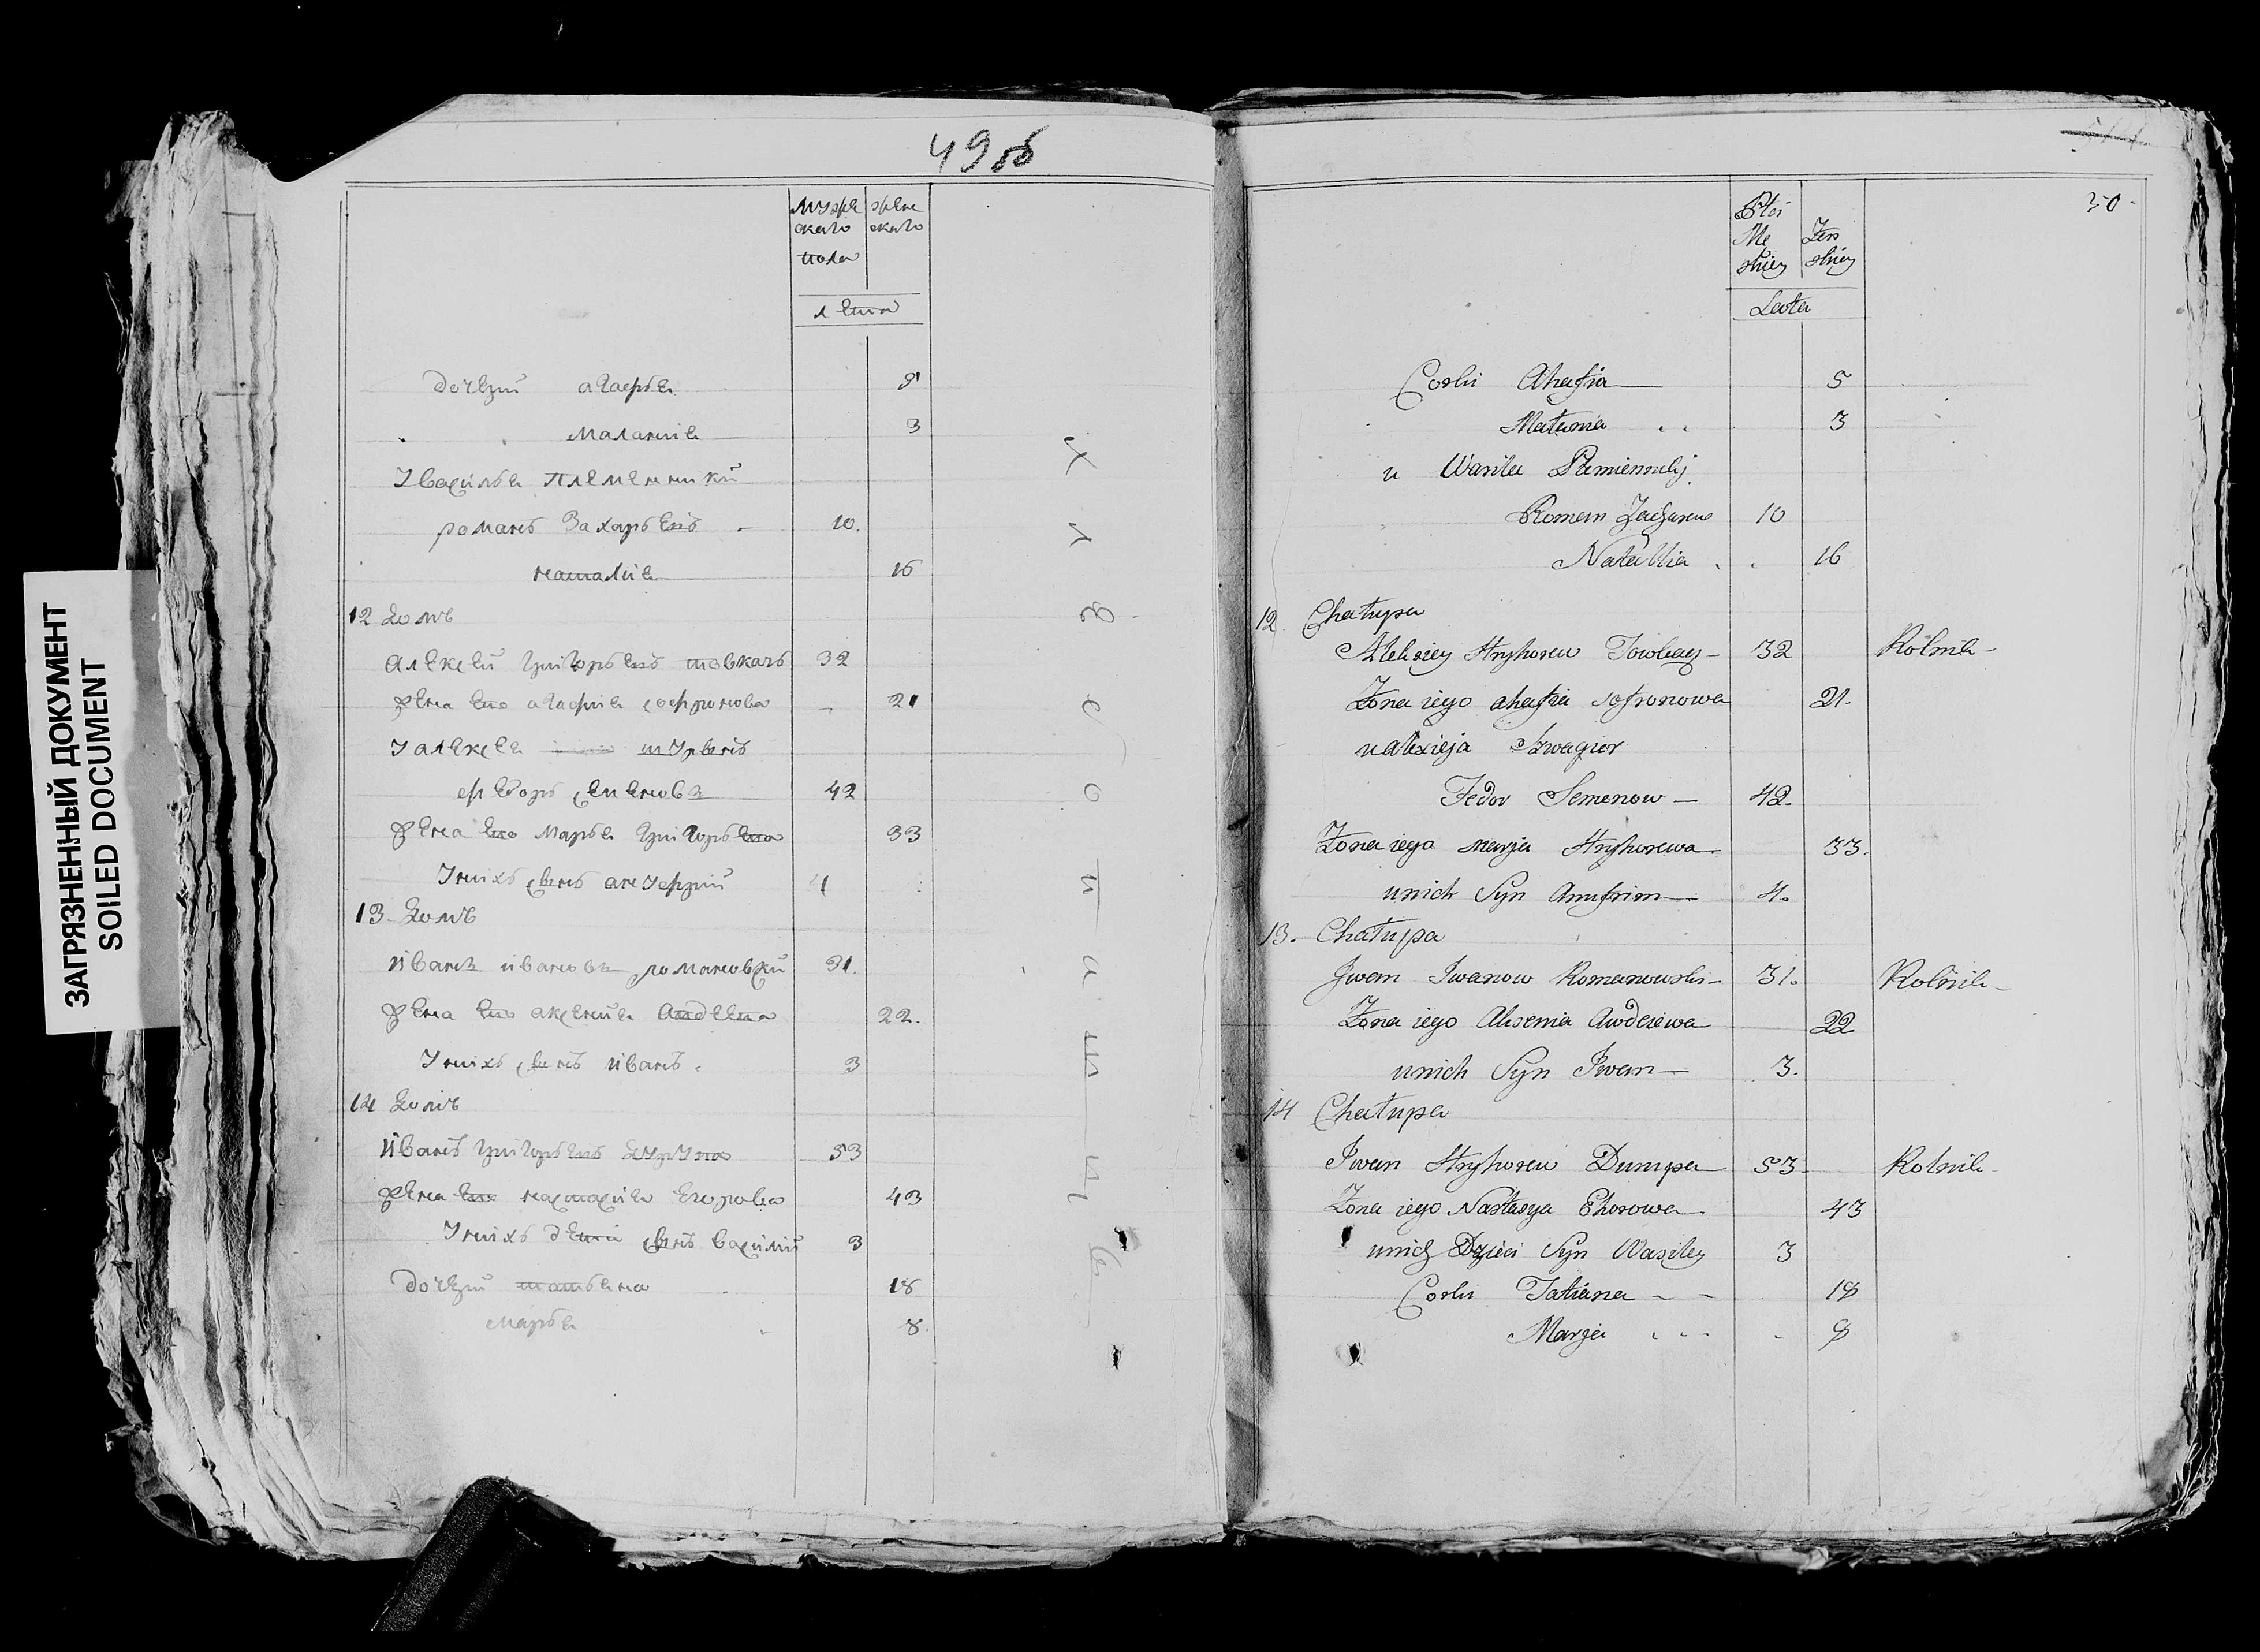 ЗАГРЯЗНЕННЫЙ ДОКУМЕНТ
SOILED DOCUMENT
49об
муже женс
скаго скаго
пола
лета
дочери агафья 5
малания 3
У василья племенники
романъ Захарьевъ 10.
наталия 16
12 домъ
Алексей григорьевъ товкачъ 32
жена его агафия софронова 21
У алексея шуринъ
федоръ семеновъ 42
жена его марья григорьева 33
У нихъ сынъ ануфрий 4
13 домъ
иванъ ивановъ романовски 31.
жена его аксения авдеева 22.
У нихъ сынъ иванъ. 3
14 домъ
иванъ григорьевъ думпа 53
жена его настасия егорова 43
У нихъ дети сынъ василий 3
дочери татьяна 18
марья 8
хлебопашцы
50.
Płci
Mę Zen
skiey skiey
Lata
Corki Ahafia 5
Małania 3
u Wasila Plemienniki
Roman Zacharew 10
Natallia 16
12. Chałupa
Aleksiey Hryhorew Towkacz 32 Rolnik
Zona iego ahafia sofronowa 21.
u alexieja Szwagier
Fedor Semenow 42.
Zona iego marja Hryhorewa 33.
unich Syn Anufrim 4.
13. Chałupa
Jwan Iwanow Romanowski 31. Rolnik
Zona iego Aksenia Awdeiewa 22
unich Syn Iwan 3.
14 Chałupa
Iwan Hryhorew Dumpa 53 Rolnik
Zona iego Nastasya Ehorowa 43
unich Dzieci Syn Wasiley 3
Corki Tatiana 18
Marja 8